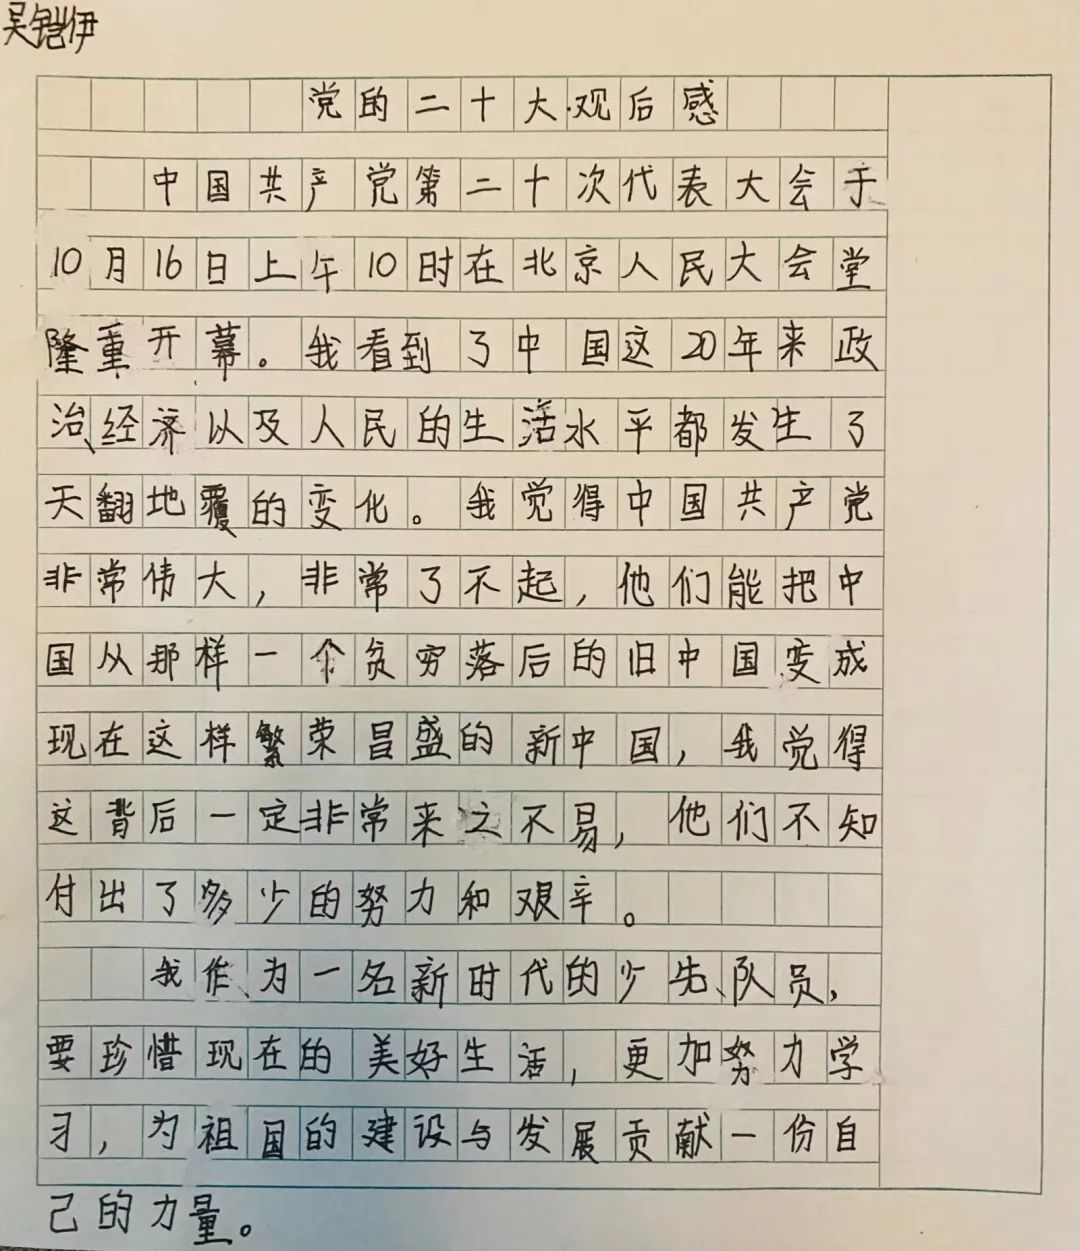 吴铠伊
党的二十大观后感
中国共产党第二十次代表大会于
10月16日上午10时在北京人民大会堂
隆重开幕。我看到了中国这20年来政
治、经济以及人民的生活水平都发生了
天翻地覆的变化。我觉得中国共产党
非常伟大,非常了不起,他们能把中
国从那样一个贫穷落后的旧中国变成
现在这样繁荣昌盛的新中国,我觉得
这背后一定非常来之不易,他们不知
付出了多少的努力和艰辛。
我作为一名新时代的少先队员,
要珍惜现在的美好生活,更加努力学
习,为祖国的建设与发展贡献一份自
己的力量。